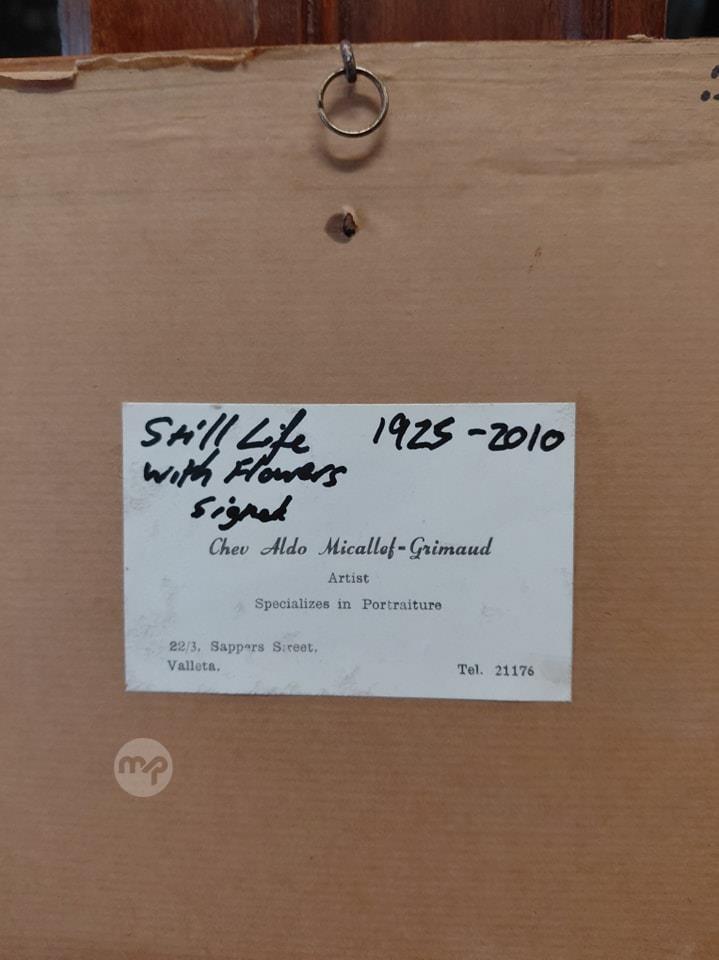 Still Life 1925-2010
with Flowers
signed
Chev Aldo Micallef-Grimaud
Artist
Specializes in Portraiture
22/3, Sappers Street,
Valleta.
Tel. 21176
mp